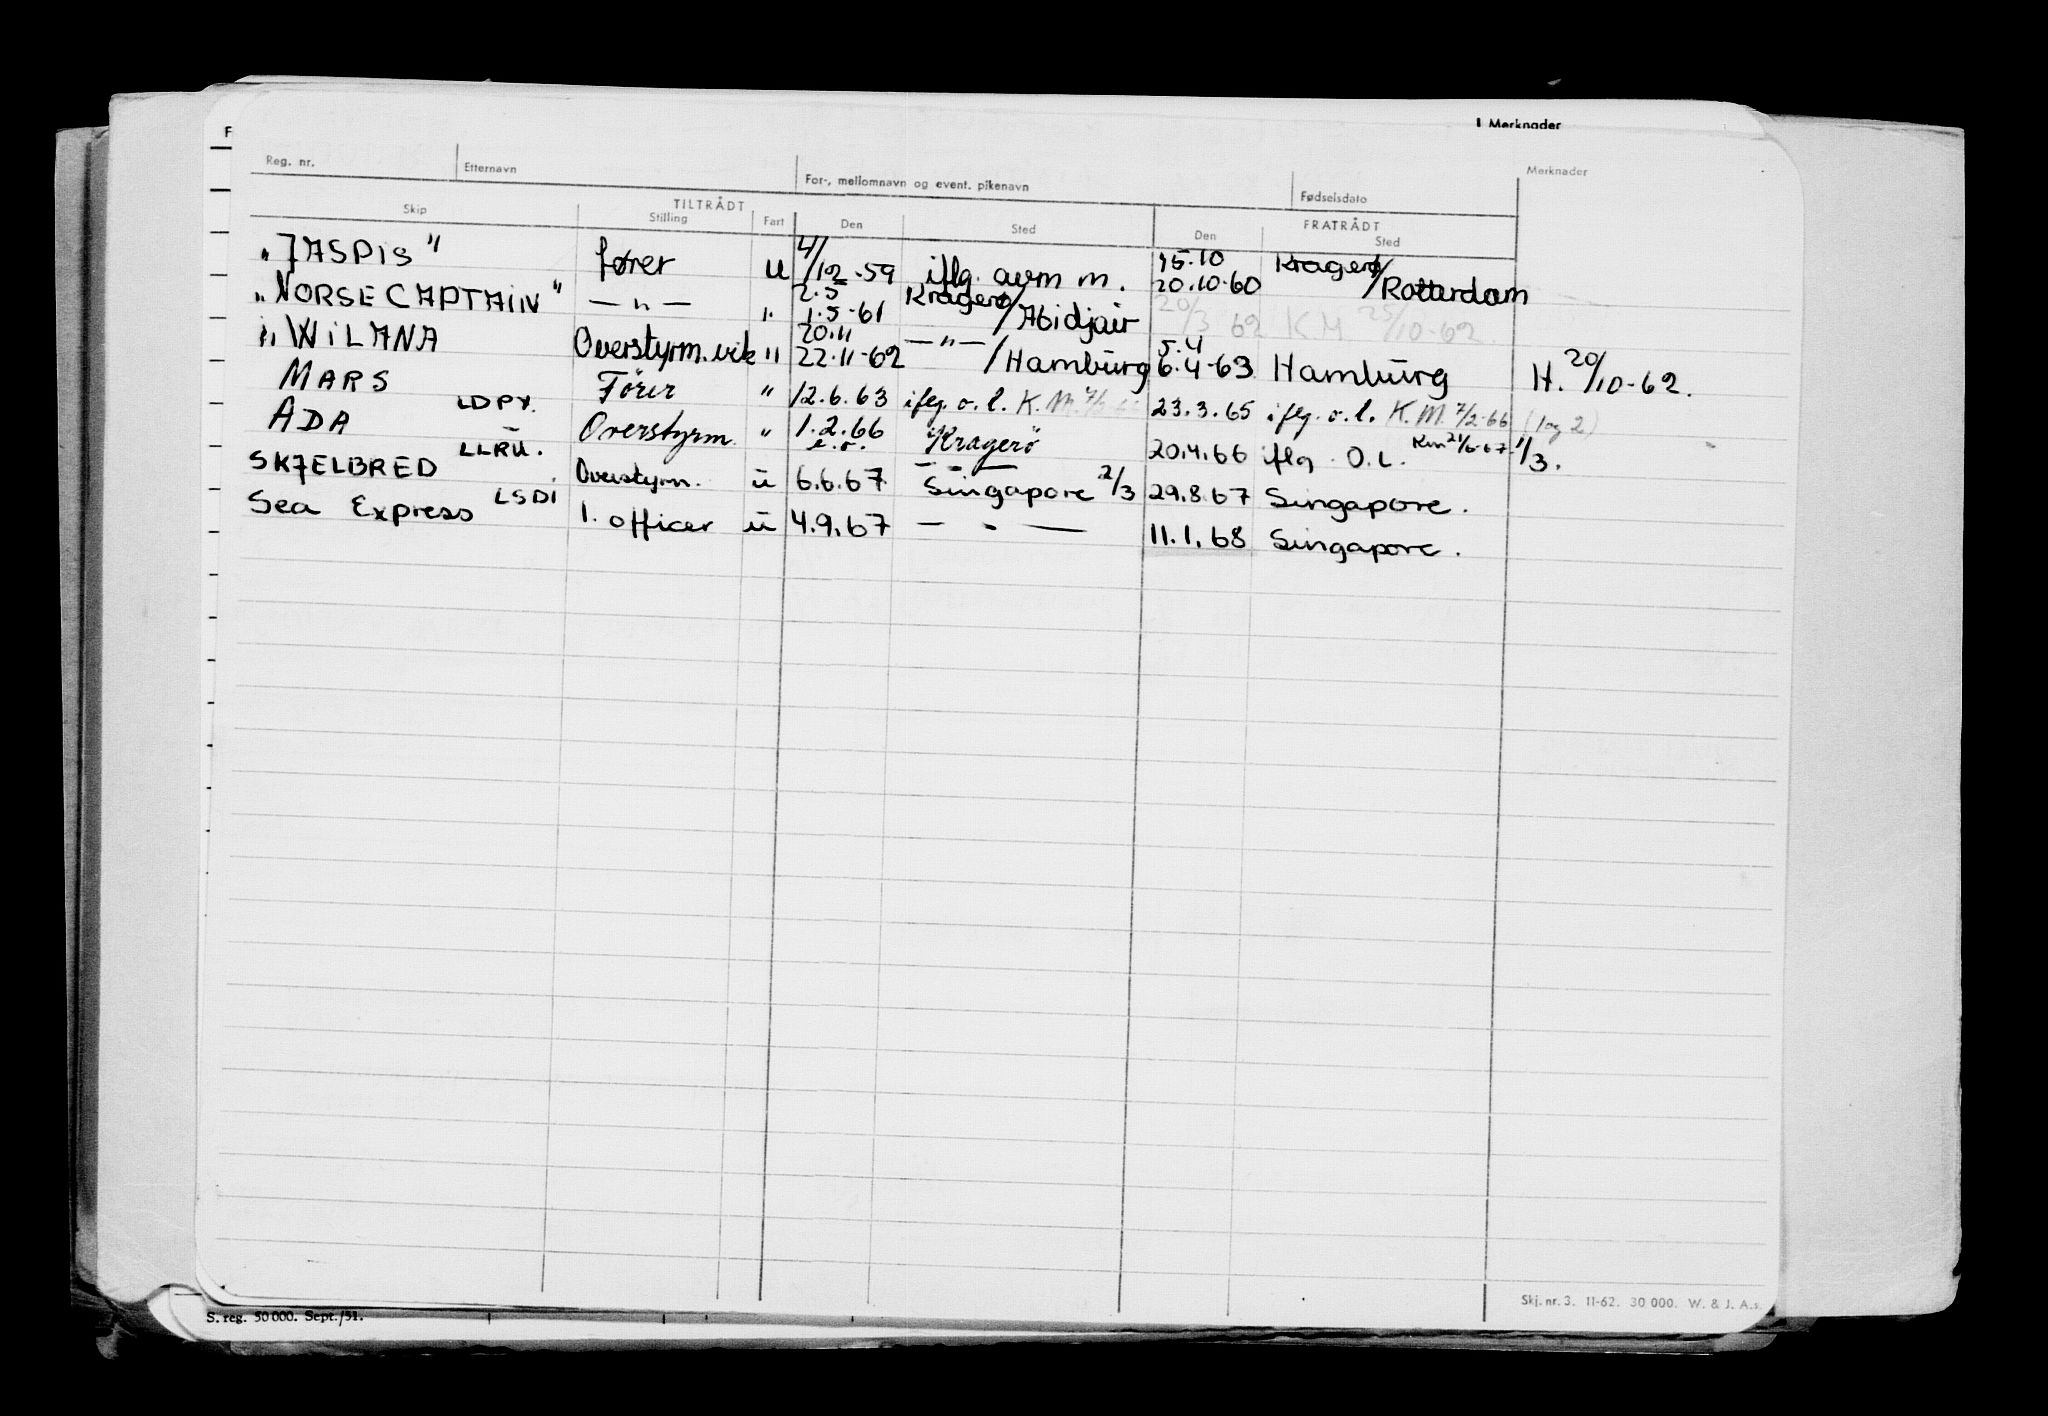 F
Merknader
Reg. nr. Etternavn For-, mellomnavn og event. pikenavn Fødselsdato Merknader
TILTRÅDT FRATRÅDT
Skip Stilling Fart Den Sted Den Sted
"JASPIS" fører u 4/12-59 iflg. avm m. 15.10 20.10-60 Kragerø/Rotterdam
"NORSE CAPTAIN" —"— " 2.5 1.5-61 Kragerø/Abidjair 20/3 62 KM 25/10-62.
"WILANA Overstyrm. vik " 20.11 22.11-62 —"—/Hamburg 5.4 6.4-63 Hamburg H. 20/10-62.
MARS Förer " 12.6.63 iflg. o.l. K.M. 7/2-66 23.3.65 iflg. o.l. K.M. 7/2-66 (log 2)
ADA LDPY. Overstyrm. " 1.2.66 e.o. Kragerö 20.4.66 iflg. O.L. Km 21/6-67 1/3.
SKJELBRED LLRU. Overstyrm. u 6.6.67 Singapore 2/3 29.8.67 Singapore.
Sea Express LSDI 1. officer u 4.9.67 — " — 11.1.68 Singapore.
Skj. nr. 3. 11-62. 30 000. W. & J. A.s.
S. reg. 50 000. Sept./51.